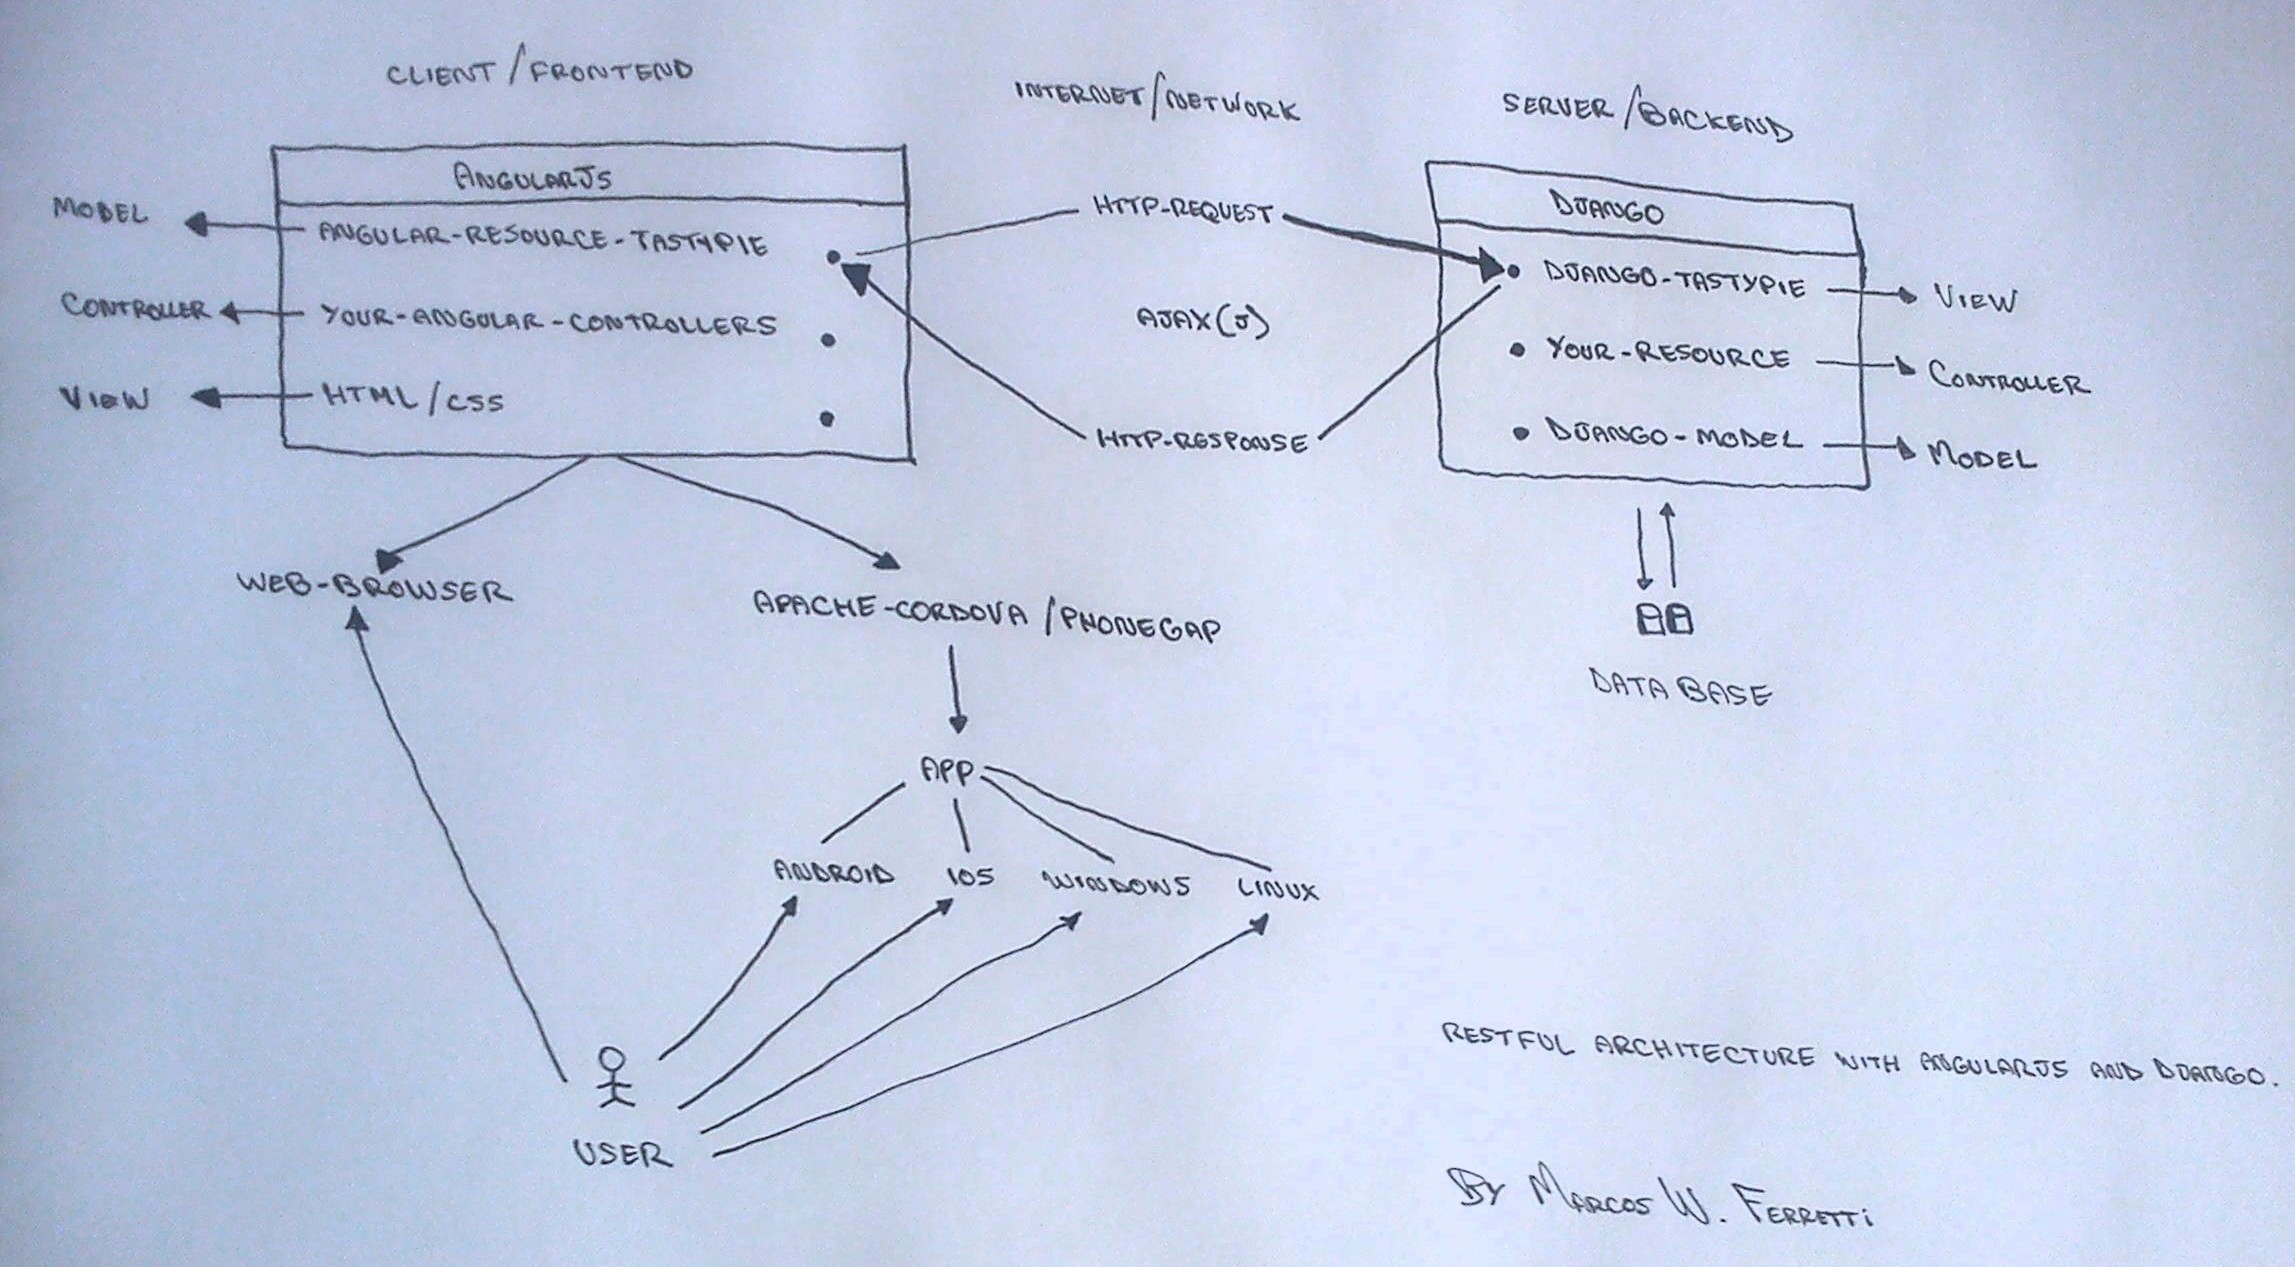 CLIENT/FRONTEND
INTERNET/NETWORK
SERVER/BACKEND
ANGULARJS
MODEL
ANGULAR-RESOURCE-TASTYPIE
CONTROLLER
YOUR-ANGULAR-CONTROLLERS
VIEW
HTML/CSS
HTTP-REQUEST
AJAX(J)
HTTP-RESPONSE
DJANGO
DJANGO-TASTYPIE
VIEW
YOUR-RESOURCE
CONTROLLER
DJANGO-MODEL
MODEL
WEB-BROWSER
APACHE-CORDOVA/PHONEGAP
DATABASE
APP
ANDROID
IOS
WINDOWS
LINUX
USER
RESTFUL ARCHITECTURE WITH ANGULARJS AND DJANGO.
BY MARCOS W. FERRETTI